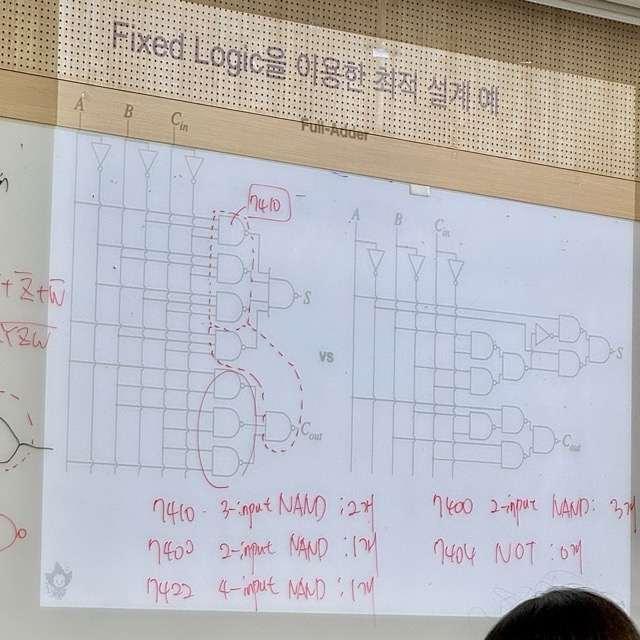 Fixed Logic을 이용한 최적 설계 예
Full-Adder
A B C_in
7410
+ Z̅ + W̅
S
A B C_in
VS
S
C_out
C_out
7410 3-input NAND : 2개
7400 2-input NAND : 1개
7422 4-input NAND : 1개
7400 2-input NAND : 3개
7404 NOT : 0개